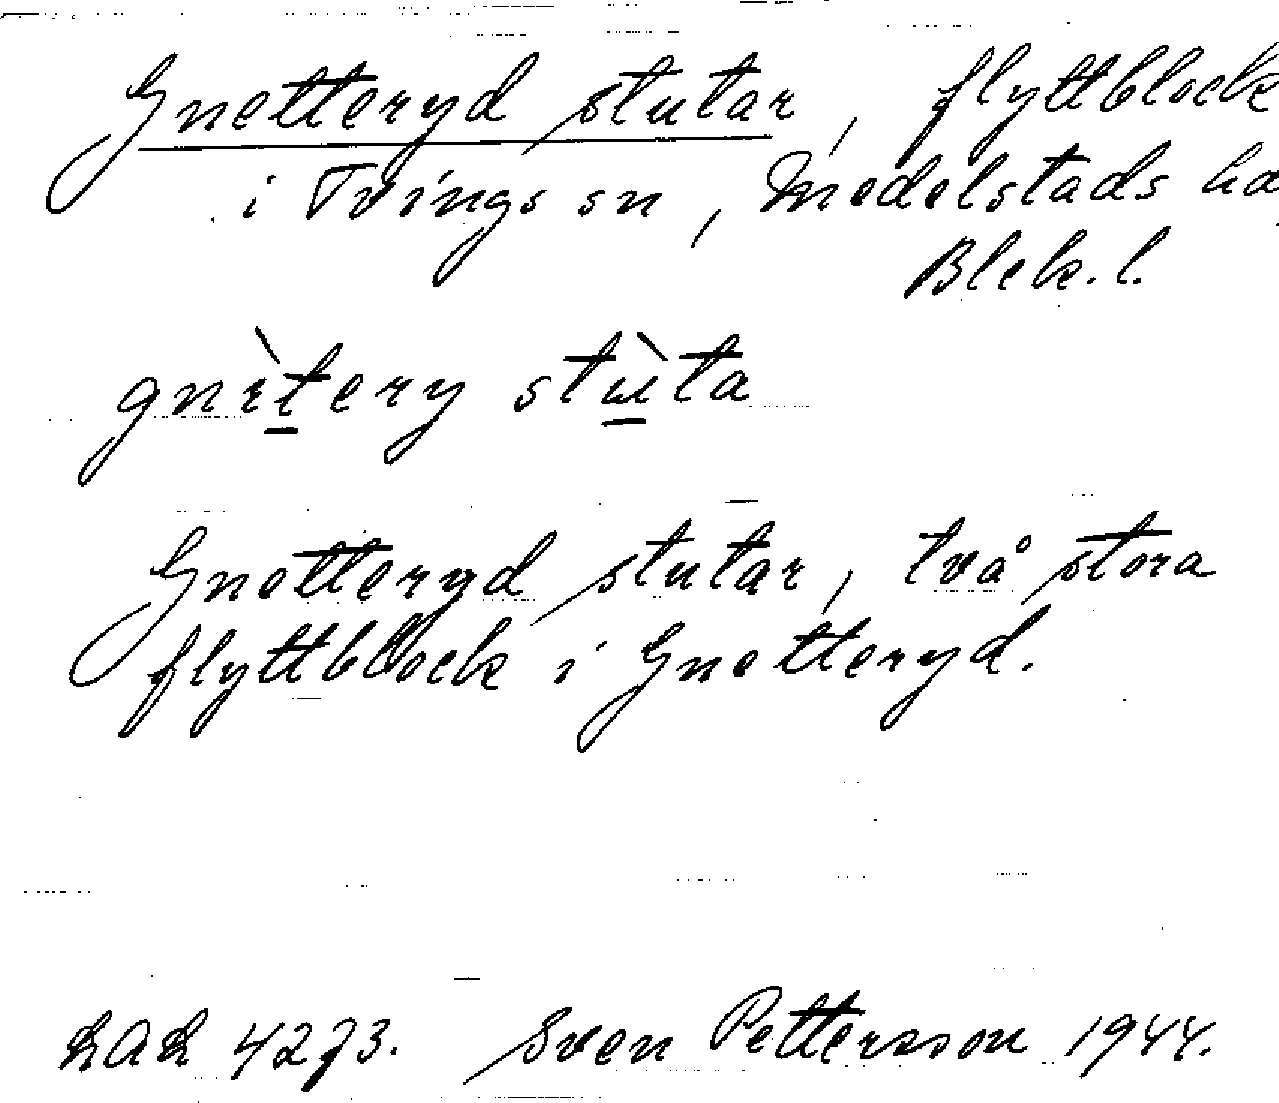 Gnetteryd stutar, flyttblock
i Tvings sn, Medelstads ha
Blek. l.
gnìtery stùta
Gnetteryd stutar, två stora
flyttblock i Gnetteryd.
LAL 4273. Sven Pettersson 1944.